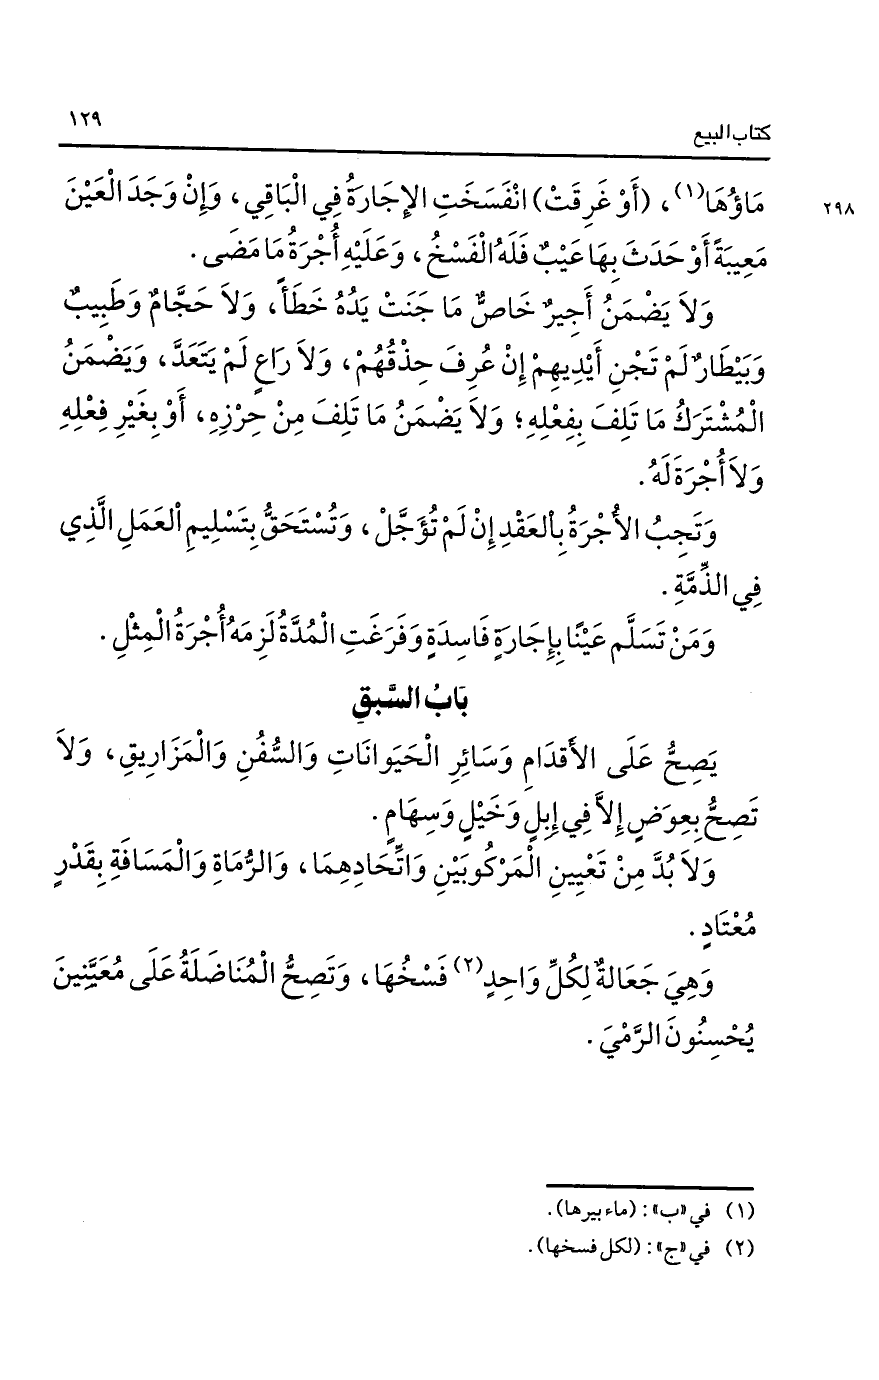 كتاب البيع
١٢٩
٢٩٨
مَاؤُهَا(١)، (أَوْ غَرِقَتْ) انْفَسَخَتِ الإِجَارَةُ فِي الْبَاقِي، وَإِنْ وَجَدَ الْعَيْنَ
مَعِيبَةً أَوْ حَدَثَ بِهَا عَيْبٌ فَلَهُ الْفَسْخُ، وَعَلَيْهِ أُجْرَةُ مَا مَضَى.
وَلاَ يَضْمَنُ أَجِيرٌ خَاصٌّ مَا جَنَتْ يَدُهُ خَطَأً، وَلاَ حَجَّامٌ وَطَبِيبٌ
وَبَيْطَارٌ لَمْ تَجْنِ أَيْدِيهِمْ إِنْ عُرِفَ حِذْقُهُمْ، وَلاَ رَاعٍ لَمْ يَتَعَدَّ، وَيَضْمَنُ
الْمُشْتَرَكُ مَا تَلِفَ بِفِعْلِهِ؛ وَلاَ يَضْمَنُ مَا تَلِفَ مِنْ حِرْزِهِ، أَوْ بِغَيْرِ فِعْلِهِ
وَلاَ أُجْرَةَ لَهُ.
وَتَجِبُ الأُجْرَةُ بِالْعَقْدِ إِنْ لَمْ تُؤَجَّلْ، وَتُسْتَحَقُّ بِتَسْلِيمِ الْعَمَلِ الَّذِي
فِي الذِّمَّةِ.
وَمَنْ تَسَلَّمَ عَيْنًا بِإِجَارَةٍ فَاسِدَةٍ وَفَرَغَتِ الْمُدَّةُ لَزِمَهُ أُجْرَةُ الْمِثْلِ.
بَابُ السَّبقِ
يَصِحُّ عَلَى الأَقدَامِ وَسَائِرِ الْحَيَوانَاتِ وَالسُّفُنِ وَالْمَزَارِيقِ، وَلاَ
تَصِحُّ بِعِوَضٍ إِلاَّ فِي إِبِلٍ وَخَيْلٍ وَسِهَامٍ.
وَلاَ بُدَّ مِنْ تَعْيِينِ الْمَرْكُوبَيْنِ وَاتِّحَادِهِمَا، وَالرُّمَاةِ وَالْمَسَافَةِ بِقَدْرٍ
مُعْتَادٍ.
وَهِيَ جَعَالةٌ لِكُلِّ وَاحِدٍ(٢) فَسْخُهَا، وَتَصِحُّ الْمُنَاضَلَةُ عَلَى مُعَيَّنِينَ
يُحْسِنُونَ الرَّمْيَ.
(١) في «ب»: (ماء بيرها).
(٢) في «ج»: (لكل فسخها).